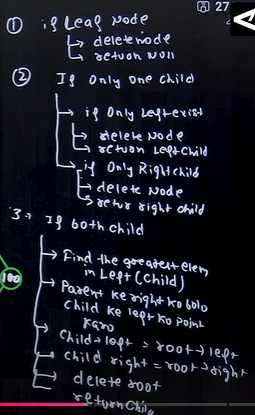 27
① if Leaf Node
↳ delete node
↳ return NUll
② If Only One child
if Only Left exist
↳ delete Node
↳ return Left Child
if Only Right child
↳ delete Node
↳ retur right child
3→ If both child
→ Find the greatest elem
in Left (Child)
→ Parent ke right ko bolo
Child ke left ko point
karo
→ Child→left = root→left
→ child right = root→right
→ delete root
return Child
100